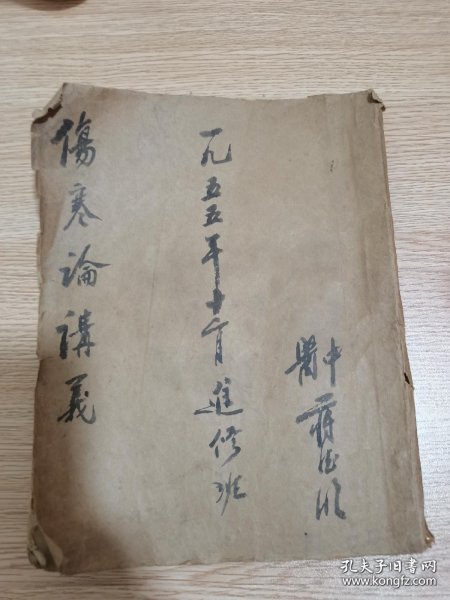 傷寒論講義
一九五五年十一月進修班
中醫
孔夫子旧书网
www.kongfz.com